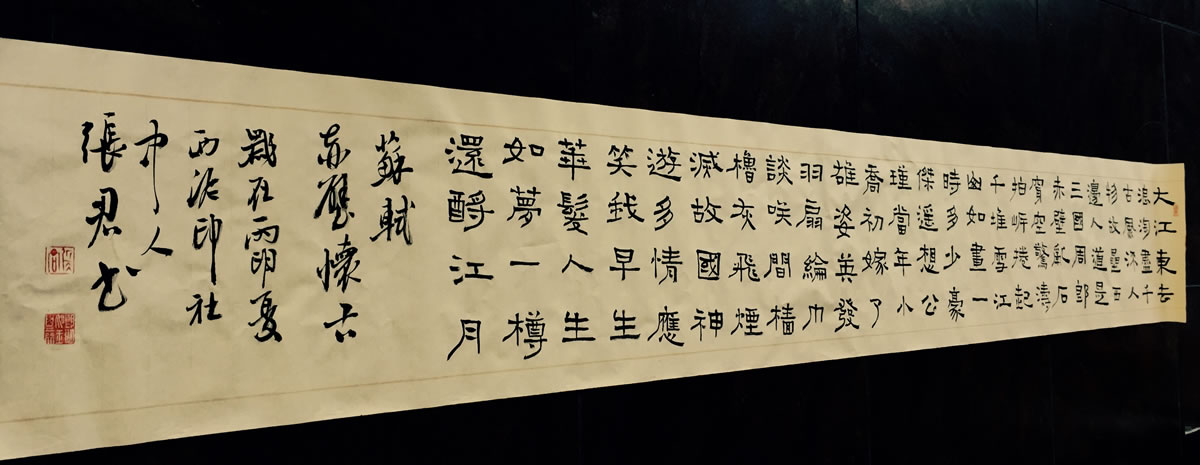 大江東去
浪淘盡千
古風流人
物故壘西
邊人道是
三國周郎
赤壁亂石
穿空驚濤
拍岸捲起
千堆雪江
山如畫一
時多少豪
傑遥想公
瑾當年小
喬初嫁了
雄姿英發
羽扇綸巾
談咲間檣
櫓灰飛煙
滅故國神
遊多情應
笑我早生
華髮人生
如夢一樽
還酹江月
蘇軾
赤壁懷古
歲在丙申夏
西泠印社
中人
張君書